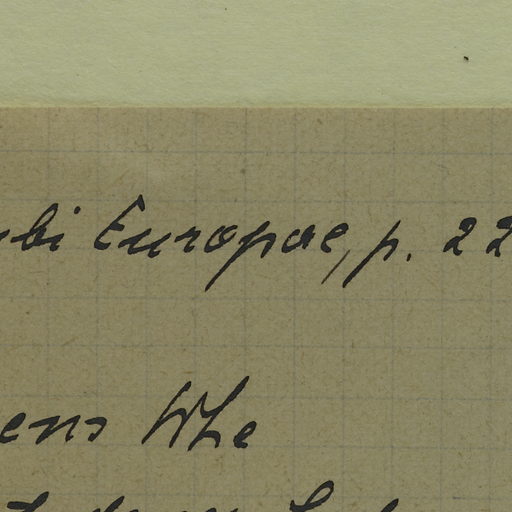 ubi Europae, p. 22
ens Whe